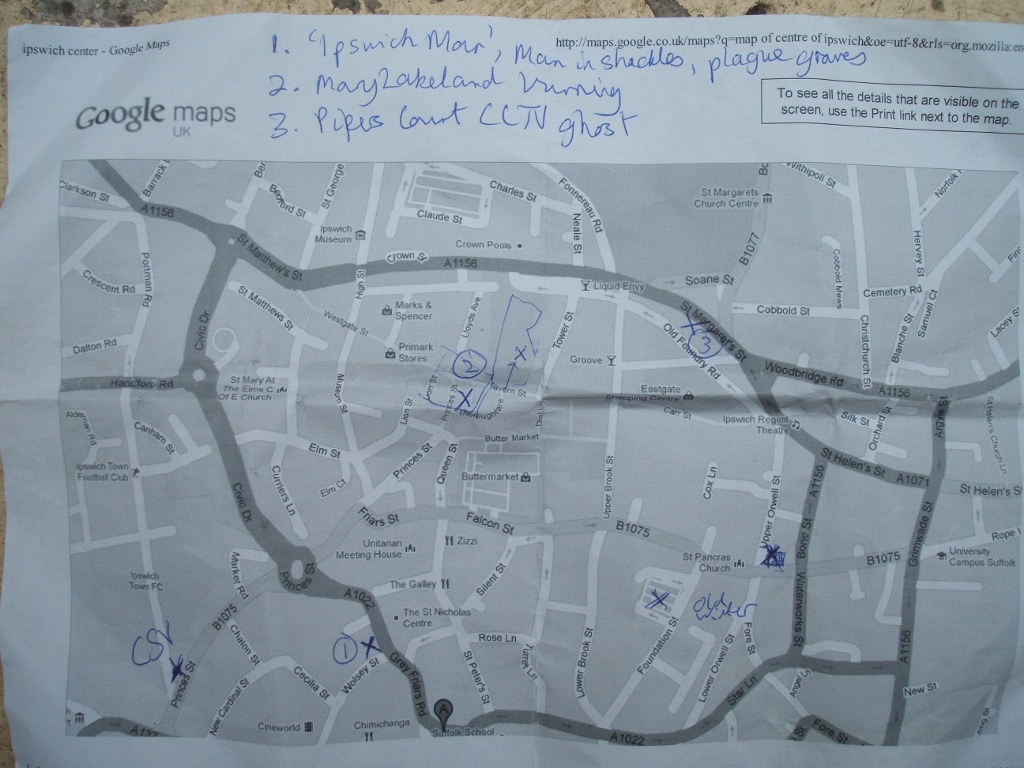 ipswich center - Google Maps
http://maps.google.co.uk/maps?q=map of centre of ipswich&oe=utf-8&rls=org.mozilla:en
1. 'Ipswich Man', Man in shackles, plague graves
2. Mary Lakeland burning
3. Pipers Court CCTV ghost
Google maps
UK
To see all the details that are visible on the
screen, use the Print link next to the map.
Clarkson St
Barrack L
A1156
Bedford St
St George
Charles St
Fonnereau Rd
Claude St
Neale St
St Margarets
Church Centre
B1077
Withipoll St
Norfolk
Ipswich
Museum
Crown Pools
St Matthew's St
Crown St
A1156
Hervey St
Cobbold Mews
Crescent Rd
Portman Rd
High St
Soane St
Liquid Envy
Cemetery Rd
Samuel Ct
St Matthews St
Westgate St
Marks &
Spencer
Lloyds Ave
Tower St
St Margaret's St
Cobbold St
Christchurch St
Blanche St
Lacey S
Civic Dr
Dalton Rd
Primark
Stores
2
Groove
Old Foundry Rd
3
Woodbridge Rd
A1156
Handford Rd
St Mary At
The Elms C
Of E Church
Museum St
Lion St
Princes St
Tavern St
Thoroughfare
Eastgate
Shopping Centre
Carr St
Ipswich Regent
Theatre
Silk St
Orchard St
Argyle St
St Helen's Church Ln
Canham St
Elm St
Princes St
Queen St
Butter Market
Ipswich Town
Football Club
Buttermarket
Elm Ct
Curriers Ln
Upper Brook St
Cox Ln
Upper Orwell St
A1156
St Helen's St
A1071
St Helen's S
Civic Dr
Friars St
Falcon St
B1075
Bond St
Grimwade St
Rope
Unitarian
Meeting House
Zizzi
St Pancras
Church
B1075
University
Campus Suffolk
Ipswich
Town FC
Market Rd
Princes St
A1022
The Galley
Silent St
B1075
The St Nicholas
Centre
Waterworks St
Fore St
CSI
Chalon St
1
Rose Ln
Turret Ln
Foundation St
A1156
Princes St
Cecilia St
Wolsey St
Grey Friars Rd
St Peter's St
Lower Brook St
Lower Orwell St
Star Ln
Angel Ln
New St
New Cardinal St
Cineworld
Chimichanga
A
Suffolk School
A1022
Fore St
A137